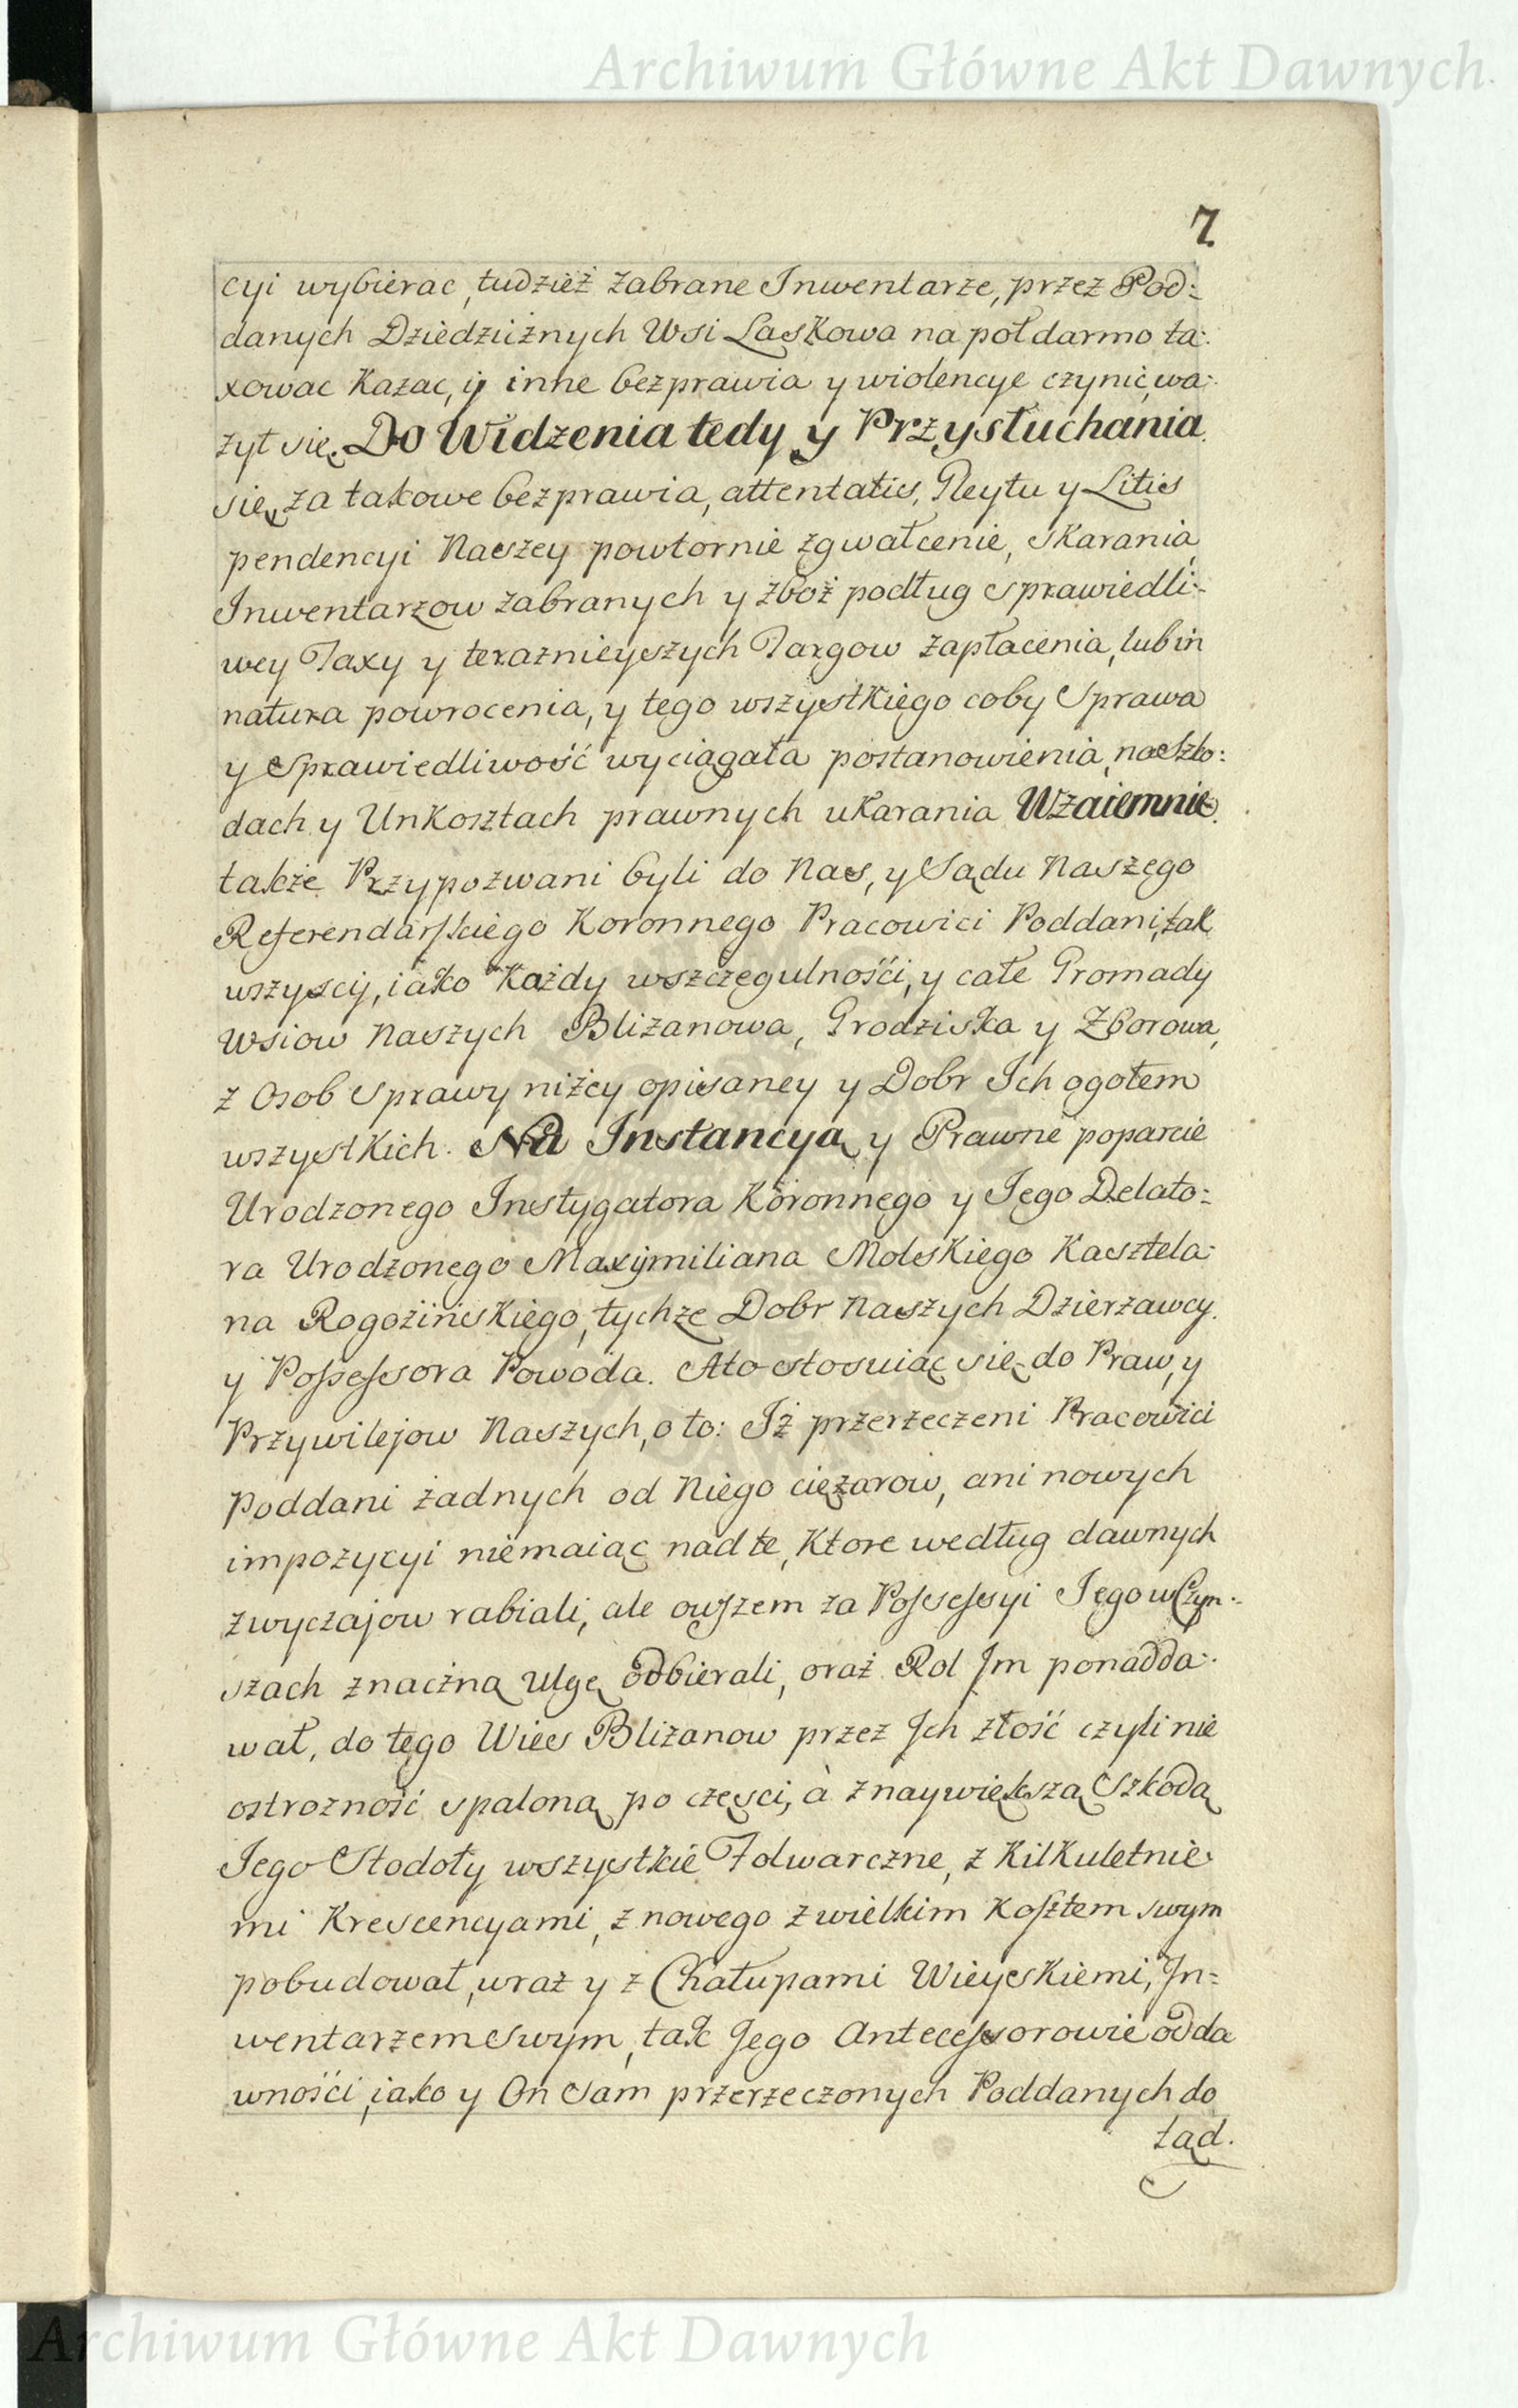 Archiwum Główne Akt Dawnych
7
cyi wybierac, tudzież zabrane Inwentarze, przez Pod:
danych Dziedziiznych Wsi Laskowa na poł darmo ta:
xowac Kazac, y inne bezprawia y wiolencye czynić, wa:
żył się. Do Widzenia tedy y Przysłuchania
się, za takowe bezprawia, attentatis, Gleytu y Litis
pendencyi Naszey powtornie zgwałcenie, skarania,
Inwentarzow zabranych y zboż podług sprawiedli:
wey Taxy y teraznieyszych Targow zapłacenia, lub in
natura powrocenia, y tego wszystkiego coby Sprawa
y Sprawiedliwość wyciągała postanowienia, na szko:
dach y Unkosztach prawnych ukarania Wzaiemnie
także Przypozwani byli do Nas, y Sądu Naszego
Referendarskiego Koronnego Pracowici Poddani, tak
wszyscy, iako Każdy wszczegulności, y całe Gromady
Wsiow Naszych Bliżanowa, Grodziska y Zborowa,
z Osob Sprawy niżey opisaney y Dobr Ich ogołem
wszystkich. Na Instancyą y Prawne poparcie
Urodzonego Instygatora Koronnego y Jego Delato:
ra Urodzonego Maxymiliana Molskiego Kasztela:
na Rogozińskiego, tychże Dobr Naszych Dzierzawcy
y Possessora Powoda. A to stosuiąc się do Praw, y
Przywilejow Naszych, o to: Iż przerzeczeni Pracowici
Poddani żadnych od Niego ciężarow, ani nowych
impozycyi niemaiąc nad te, Ktore według dawnych
zwyczajow rabiali, ale owszem za Possessyi Jego w Czyn:
szach znaczną ulgę odbierali, oraz Rol Im ponadda:
wał, do tego Wies Bliżanow przez Ich złość czyli nie
ostrozność spaloną po częsci, à z naywiększą Szkodą
Jego Stodoły wszystkie Folwarczne, z Kilkuletnie
mi Krescencyami, z nowego z wielkim Kosztem swym
pobudował, wraz y z Chałupami Wieyskiemi, In=
wentarzem swym, tak Jego Antecessorowie od da
wności, iako y On Sam przerzeczonych Poddanych do
tąd.
Archiwum Główne Akt Dawnych